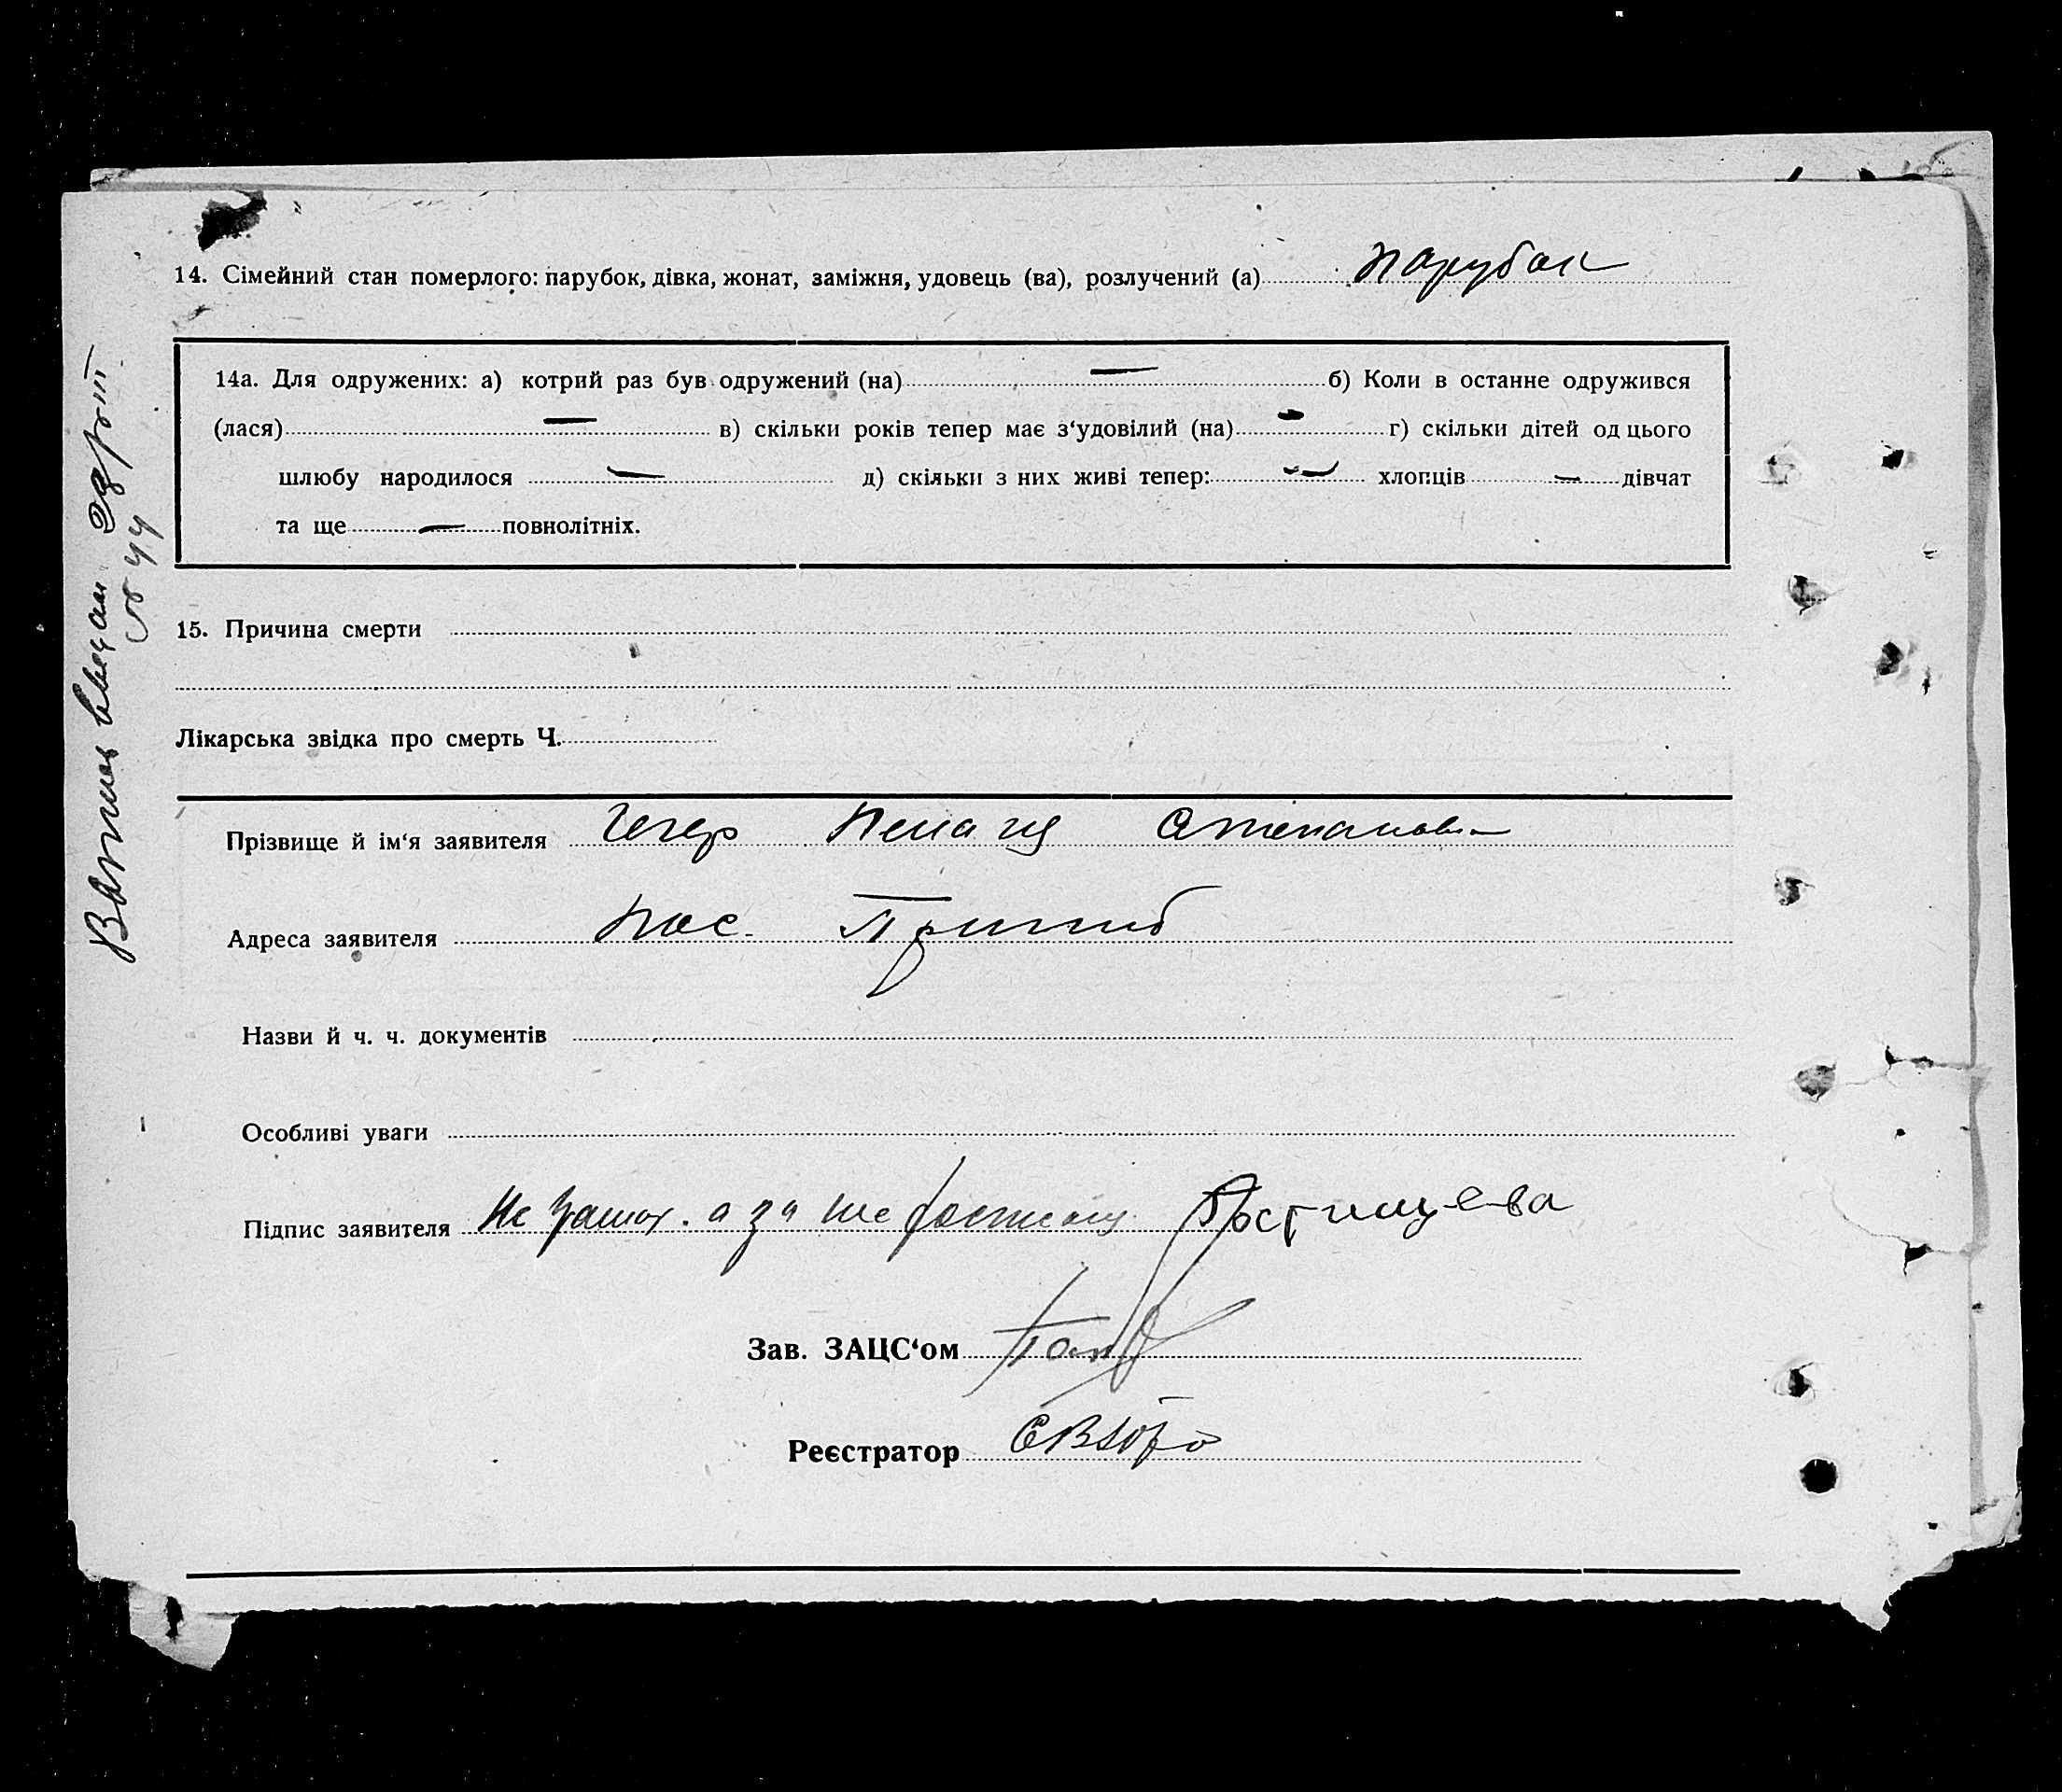 14. Сімейний стан померлого: парубок, дівка, жонат, заміжня, удовець (ва), розлучений (а) парубок
14а. Для одружених: а) котрий раз був одружений (на) — б) Коли в останнє одружився
(лася) — в) скільки років тепер має з‘удовілий (на) — г) скільки дітей од цього
шлюбу народилося — д) скільки з них живі тепер: — хлопців — дівчат
та ще — повнолітніх.
15. Причина смерти
Лікарська звідка про смерть Ч.
Прізвище й ім‘я заявителя Степанович
Адреса заявителя пос.
Назви й ч. ч. документів
Особливі уваги
Підпис заявителя Не а за Постишева
Зав. ЗАЦС‘ом
Реєстратор
№ 44